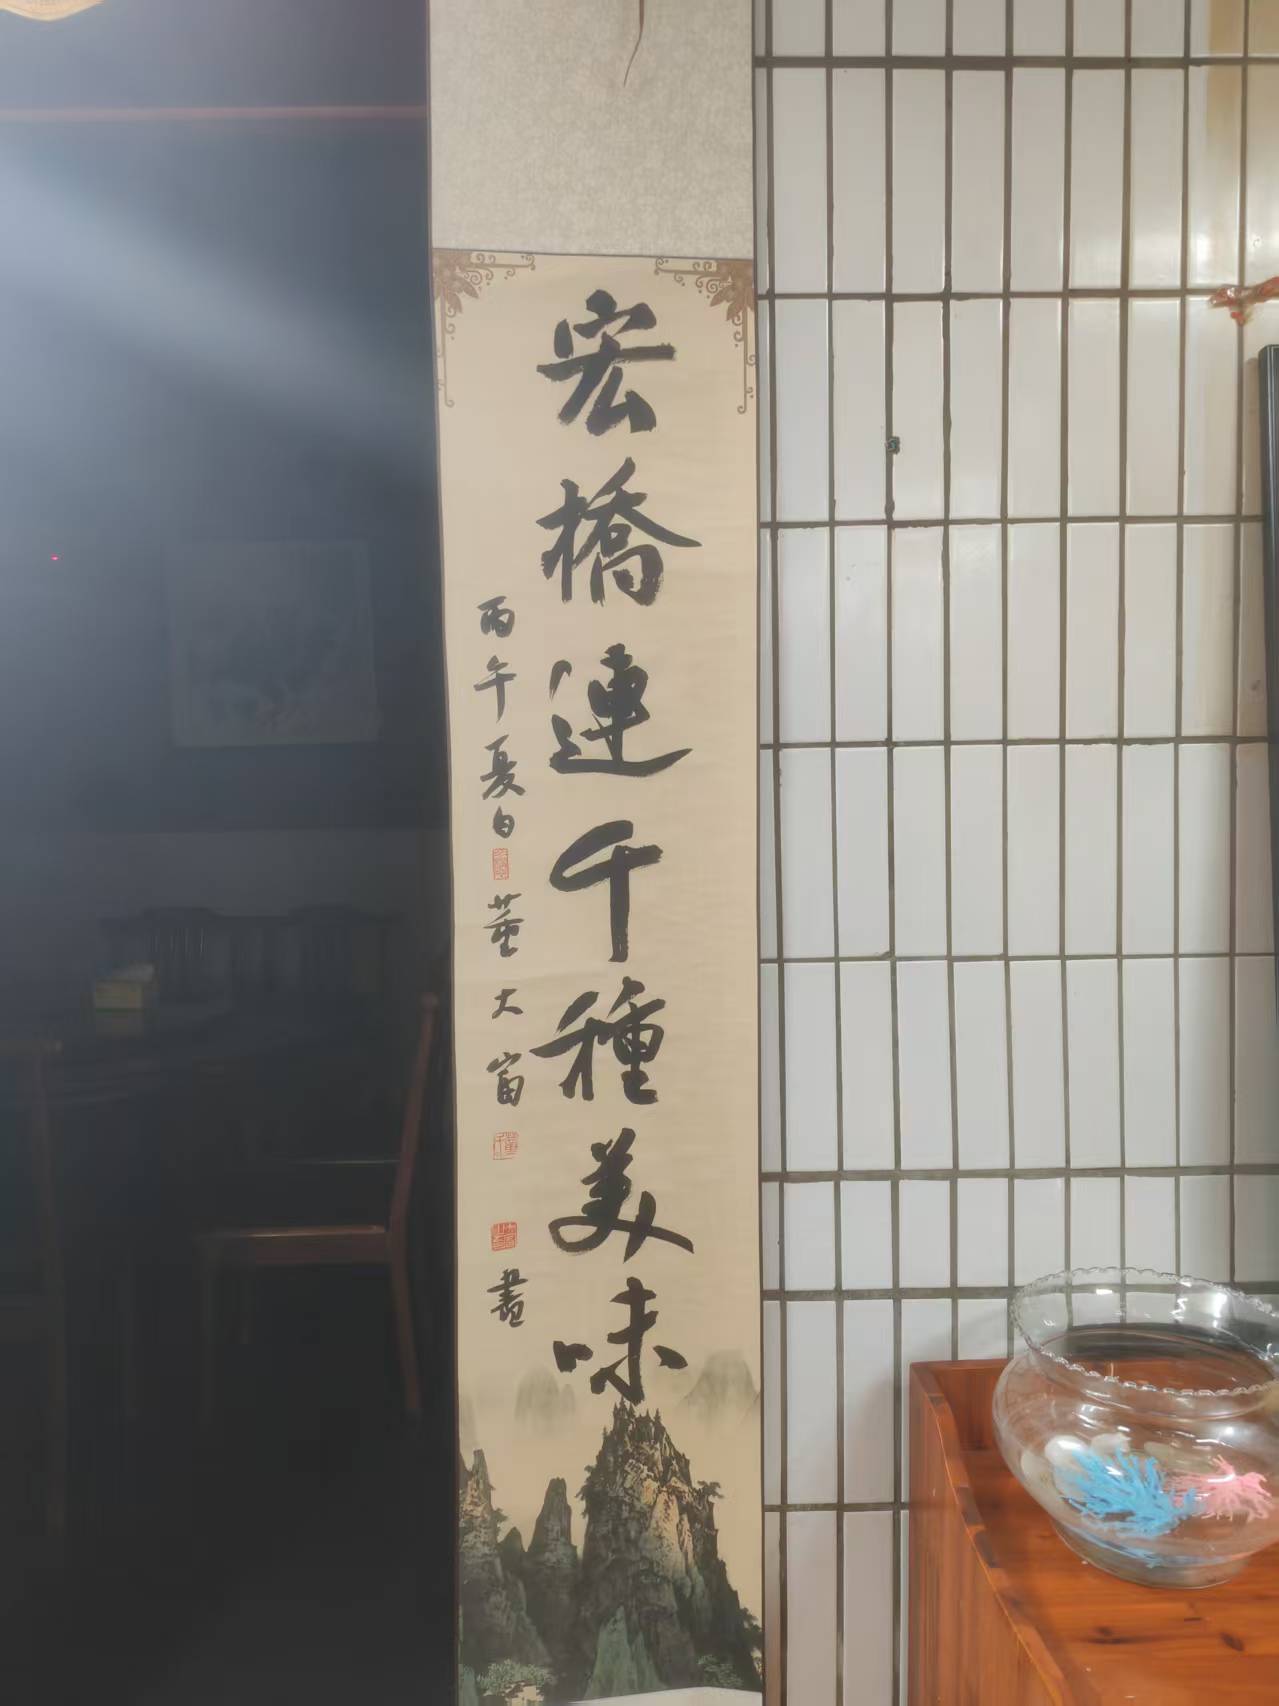 宏橋連千種美味
丙午夏白
董大富
書